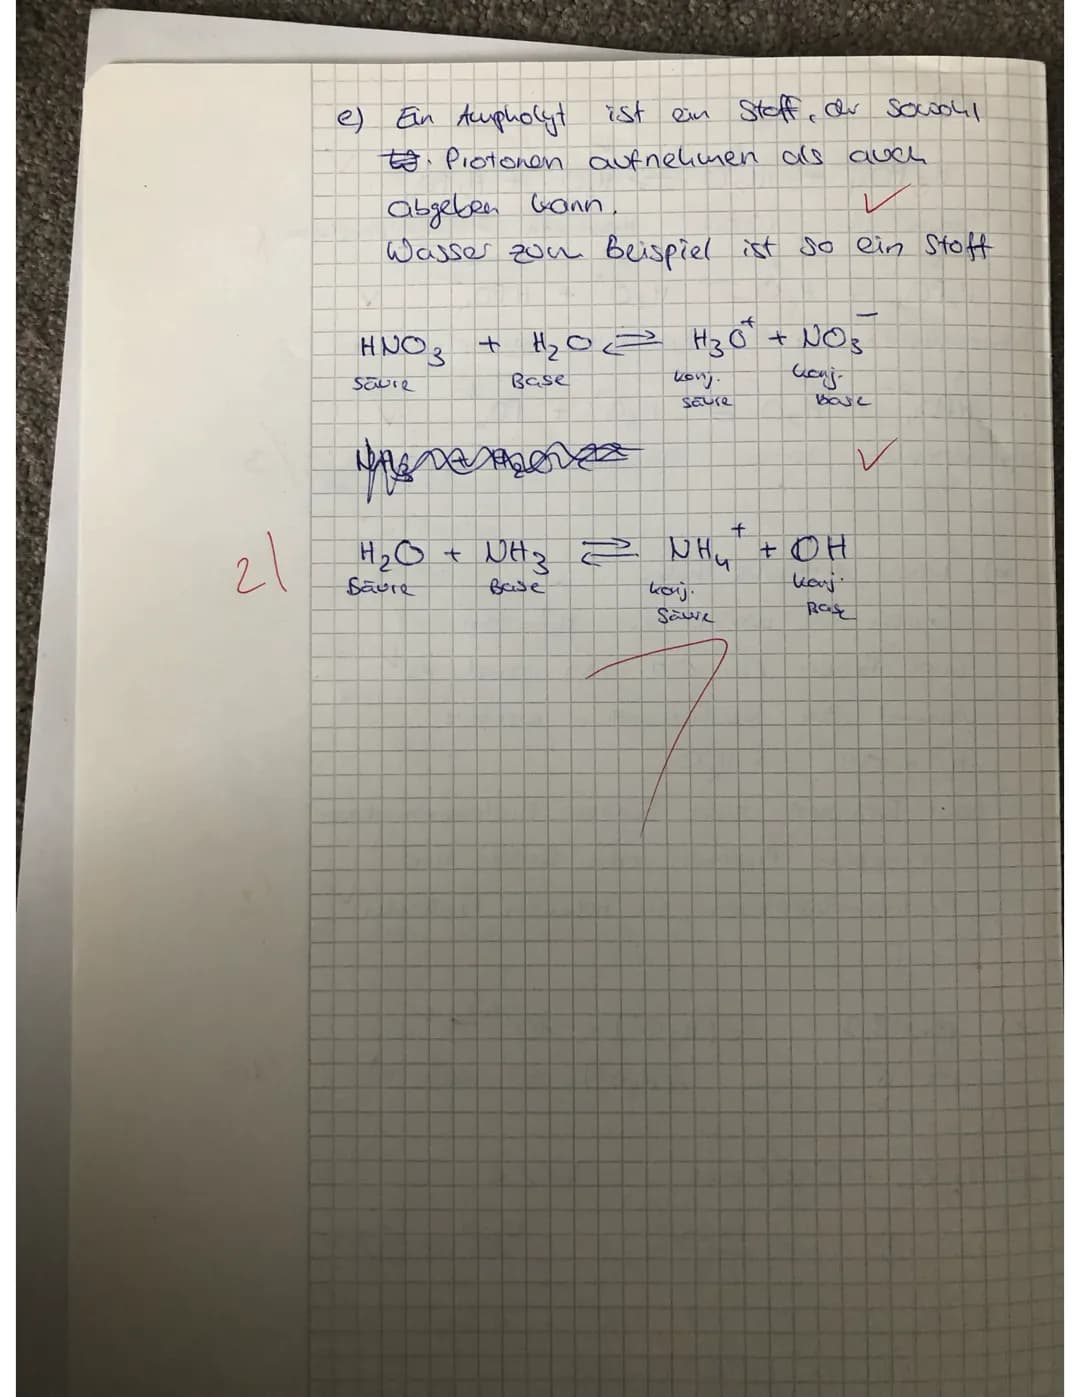 e) Ein Ampholyt ist ein Stoff, der sowohl
Protonen aufnehmen als auch
abgeben kann.
Wasser zum Beispiel ist so ein Stoff
HNO₃ + H₂O ⇌ H₃O⁺ + NO₃⁻
Säure Base konj. Säure konj. Base
2/
H₂O + NH₃ ⇌ NH₄⁺ + OH
Säure Base konj. Säure konj. Base